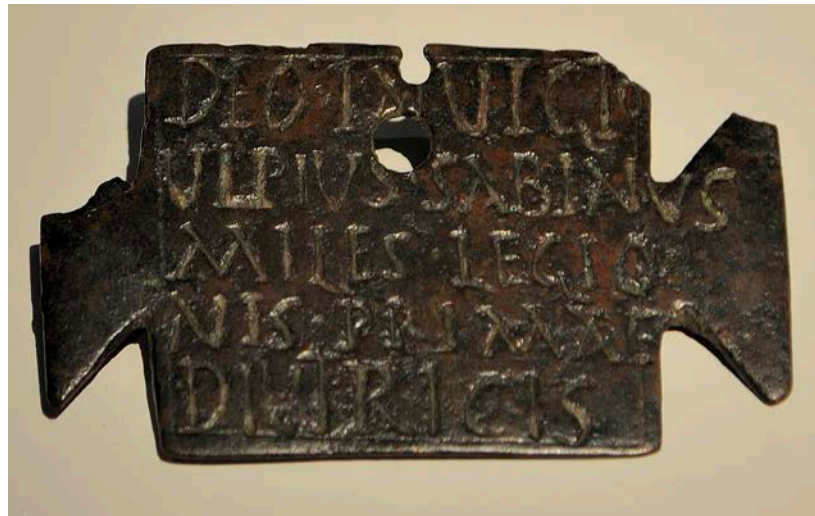 DEO·IN VICTO
VLPIVS·SABINVS
MILES·LEGIO
NIS·PRI·MAE
DIVTRICIS